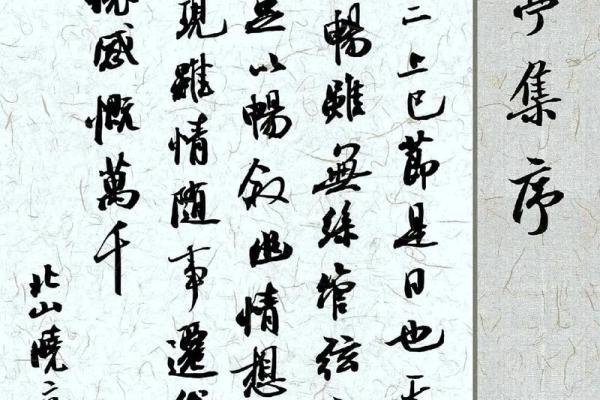 亭集序
上巳節是日也
暢雖無絲管弦
足以暢叙幽情想
現雖情隨事遷
感慨萬千
北山曉